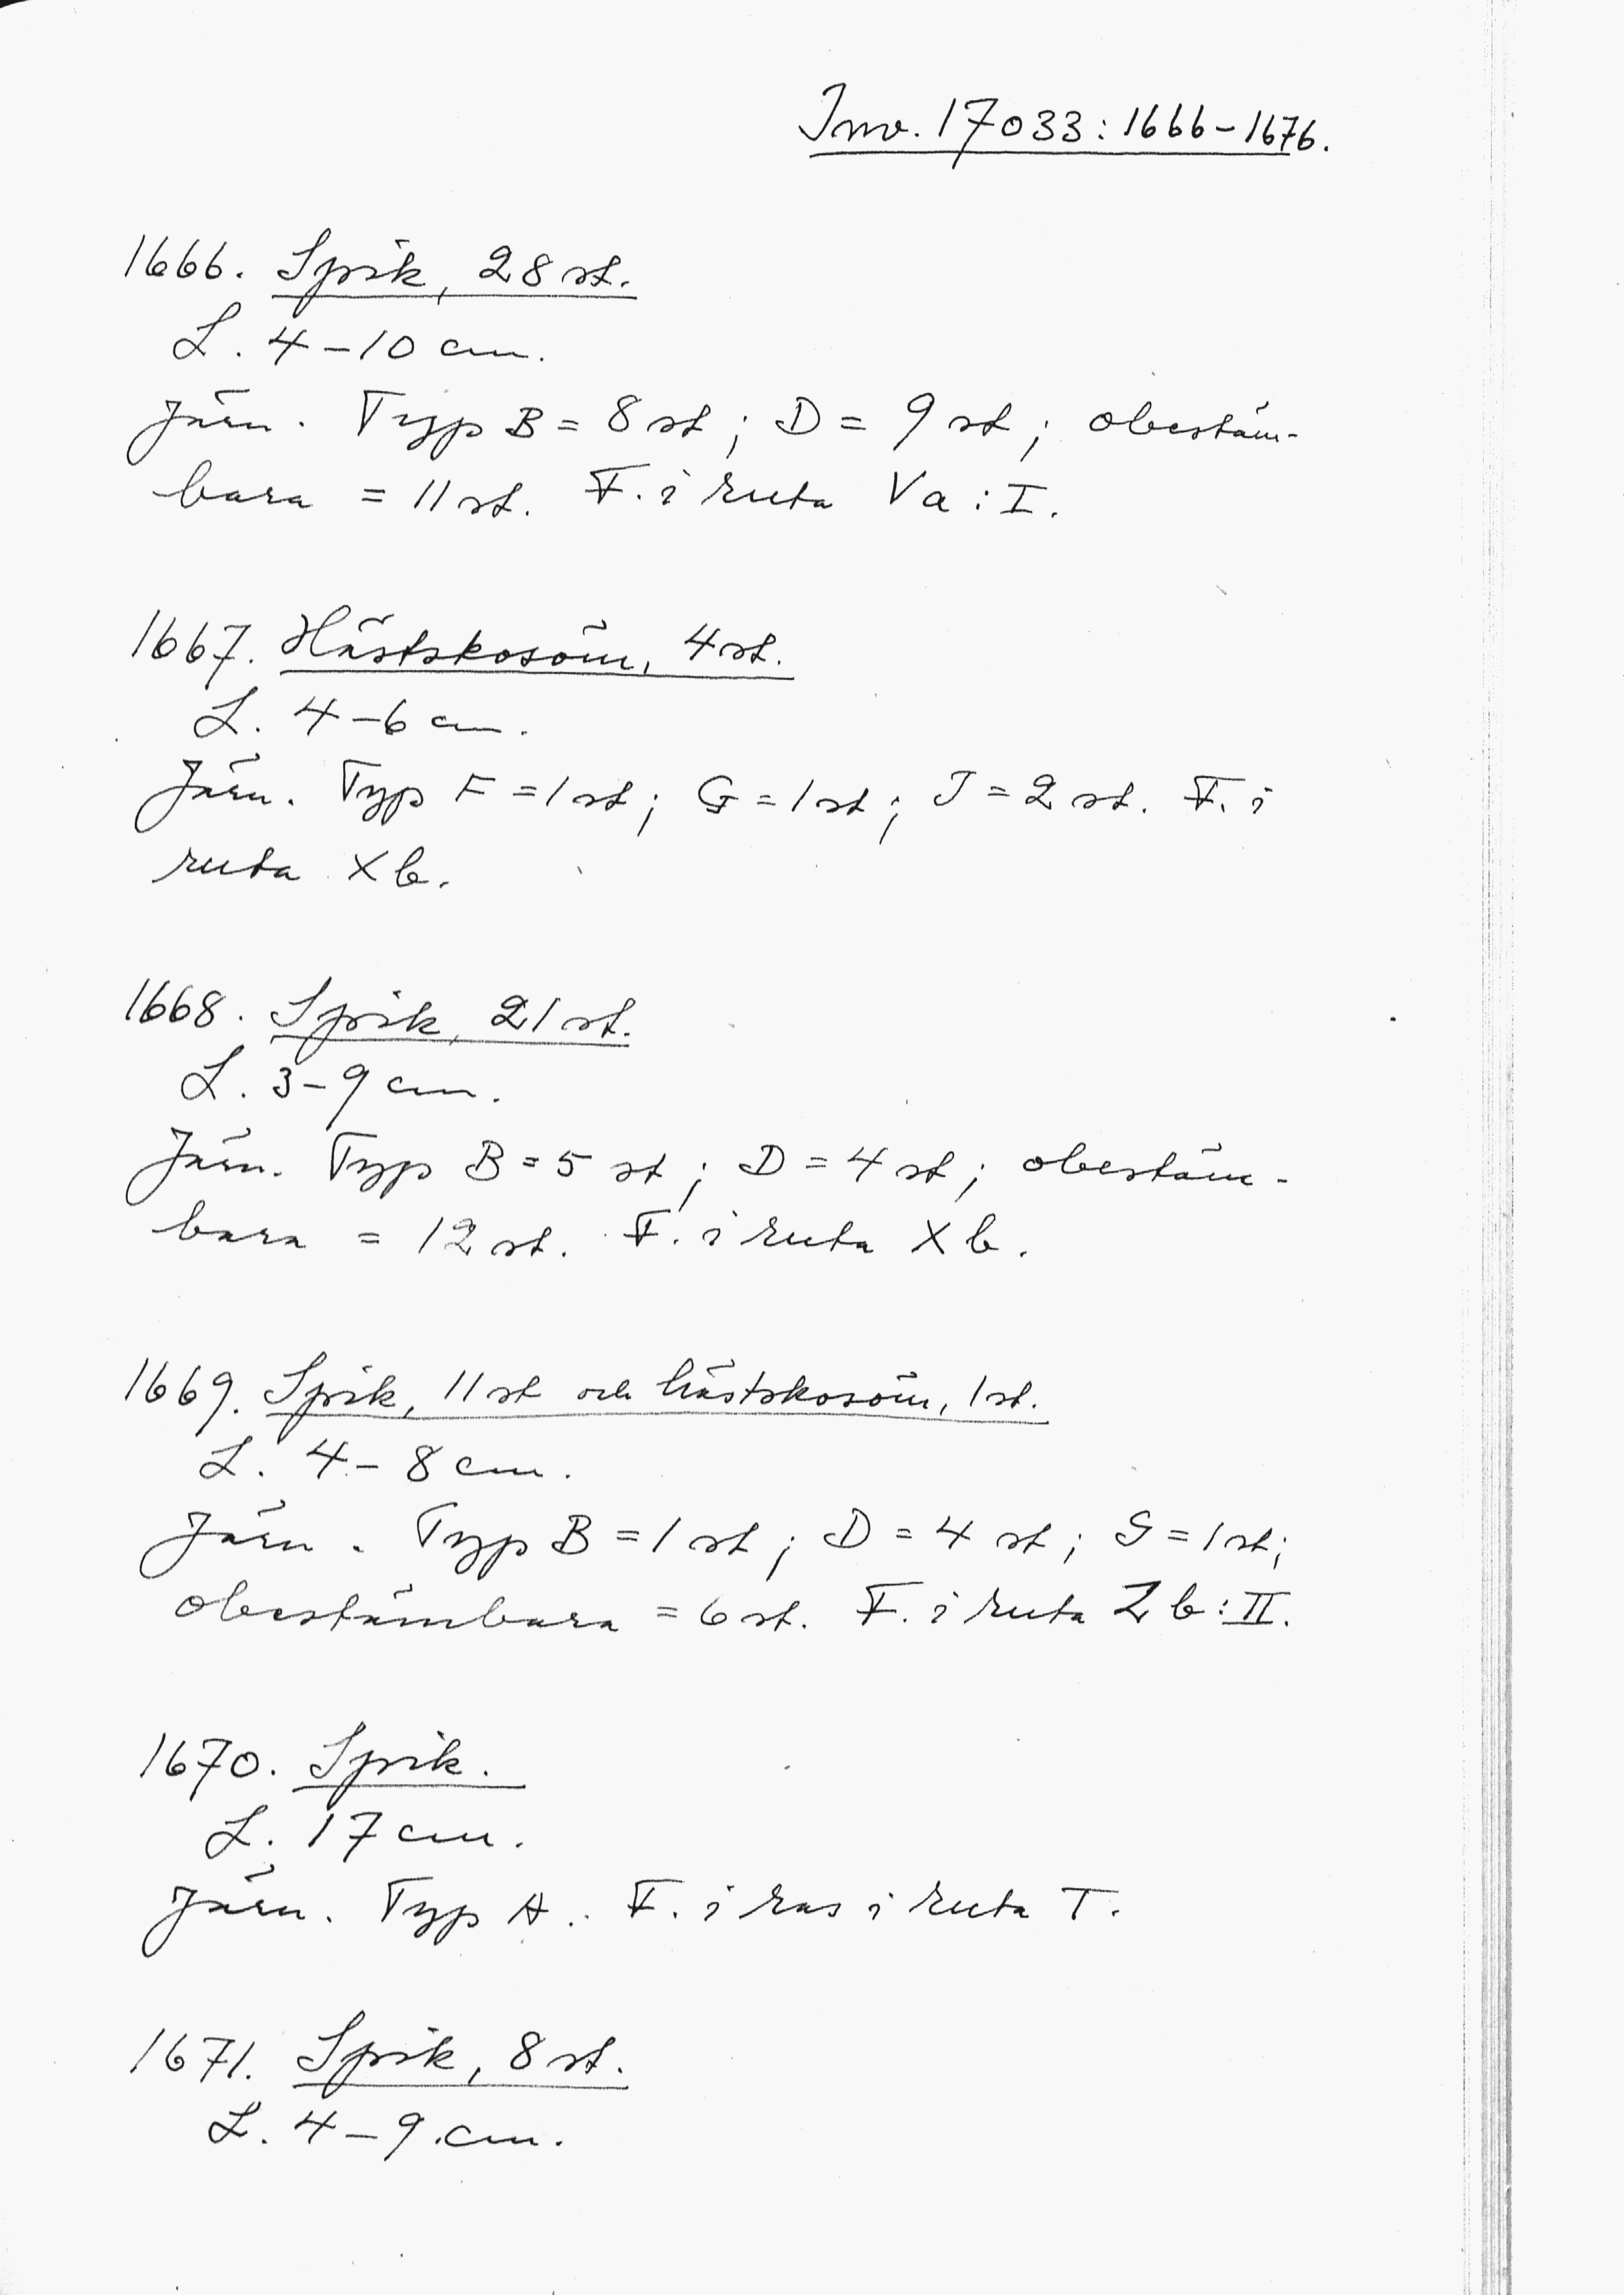 Inv. 17033:1666-1676.
1666. Spik, 28 st.
L. 4-10 cm.
Järn. Typ B = 8 st; D = 9 st; obestäm-
bara = 11 st. F. i ruta Va:I.
1667. Hästskosöm, 4 st.
L. 4-6 cm.
Järn. Typ F = 1 st; G = 1 st; J = 2 st. F. i
ruta Xb.
1668. Spik, 21 st.
L. 3-9 cm.
Järn. Typ B = 5 st; D = 4 st; obestäm-
bara = 12 st. F. i ruta Xb.
1669. Spik, 11 st och hästskosöm, 1 st.
L. 4-8 cm.
Järn. Typ B = 1 st; D = 4 st; G = 1 st;
obestämbara = 6 st. F. i ruta Zb:II.
1670. Spik.
L. 17 cm.
Järn. Typ A. F. i ras i ruta T.
1671. Spik, 8 st.
L. 4-9 cm.